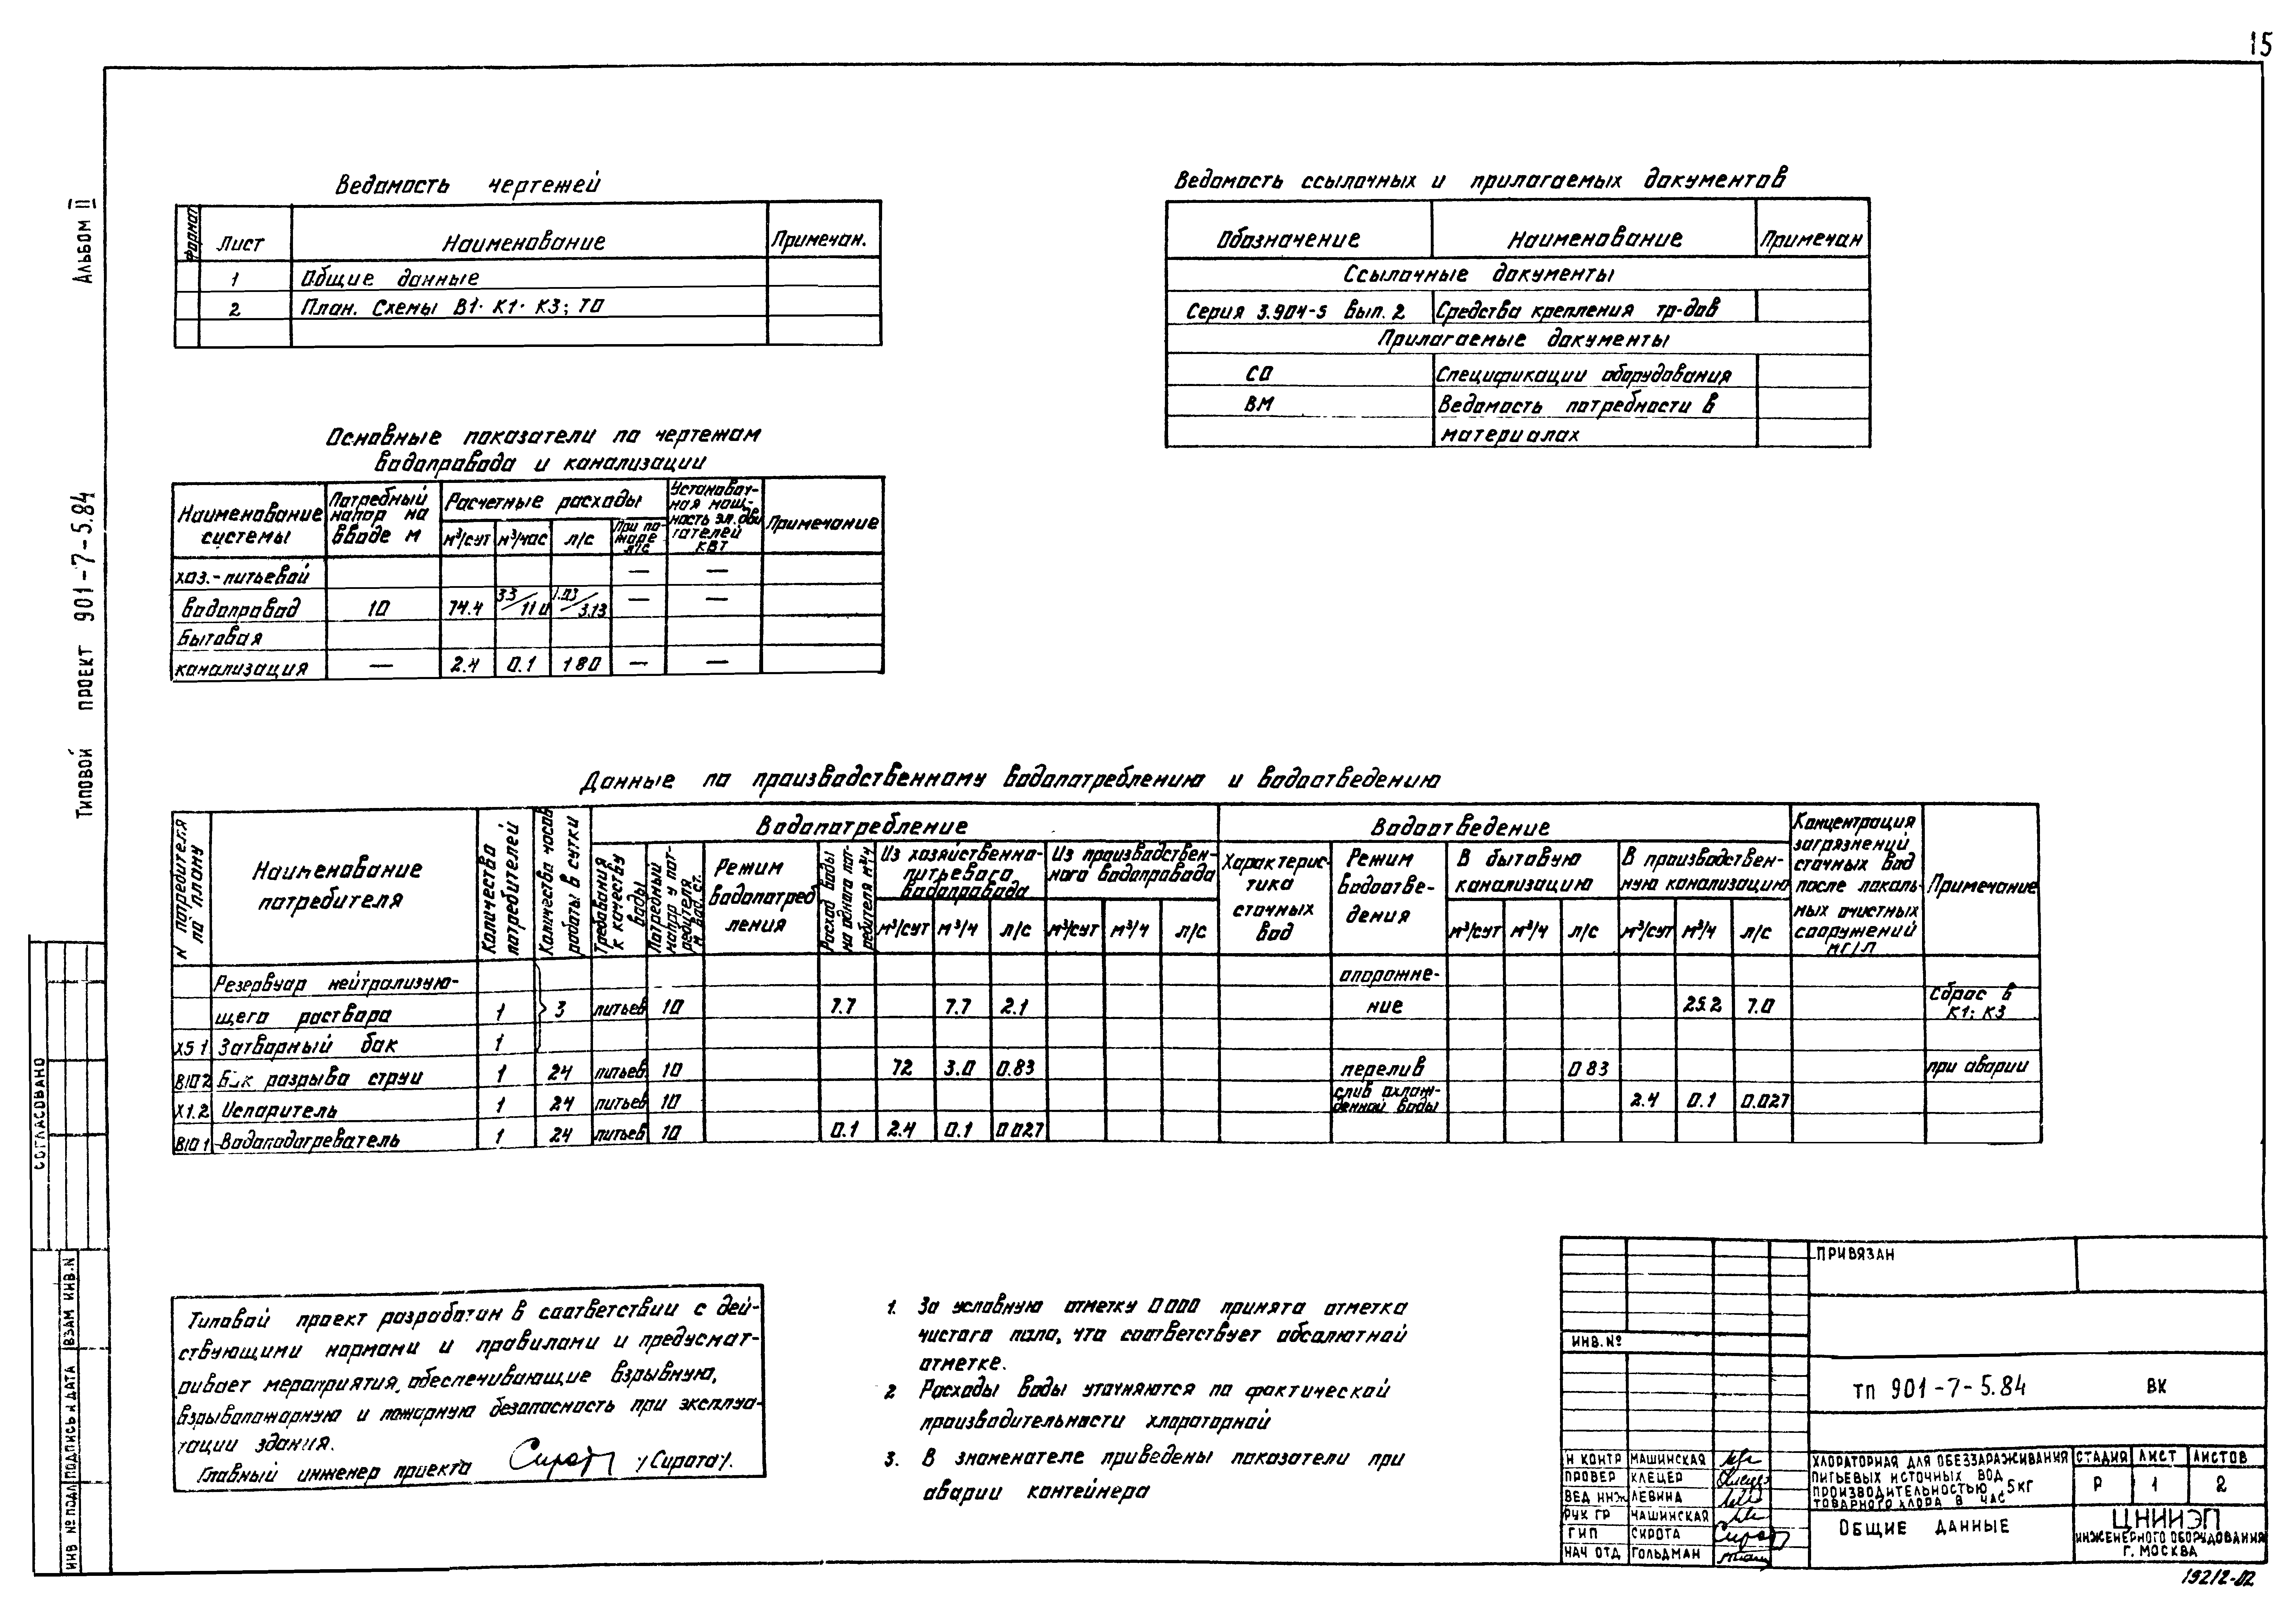 15
Альбом II
Типовой проект 901-7-5.84
Ведомость чертежей
Формат Лист Наименование Примечан.
1 Общие данные
2 План. Схемы В1· К1· К3; Т0
Ведомость ссылочных и прилагаемых документов
Обозначение Наименование Примечан
Ссылочные документы
Серия 3.904-5 Вып. 2 Средства крепления тр-дов
Прилагаемые документы
СО Спецификации оборудования
ВМ Ведомость потребности в
материалах
Основные показатели по чертежам
водопровода и канализации
Наименование системы
Потребный напор на вводе м
Расчетные расходы
м³/сут м³/час л/с При пожаре л/с
Установочная мощность эл. двигателей квт
Примечание
хоз.-питьевой — —
водопровод 10 74.4 3.3/11.0 1.03/3.13 — —
Бытовая
канализация — 2.4 0.1 180 — —
Данные по производственному водопотреблению и водоотведению
N потребителя по плану
Наименование потребителя
Количество потребителей
Количество часов работы в сутки
Водопотребление
Требования к качеству воды
Потребный напор у потребителя м вод. ст.
Режим водопотребления
Расход воды на одного потребителя м³/ч
Из хозяйственно-питьевого водопровода
м³/сут м³/ч л/с
Из производственного водопровода
м³/сут м³/ч л/с
Водоотведение
Характеристика сточных вод
Режим водоотведения
В бытовую канализацию
м³/сут м³/ч л/с
В производственную канализацию
м³/сут м³/ч л/с
Концентрация загрязнений сточных вод после локальных очистных сооружений мг/л
Примечание
Резервуар нейтрализую- опорожне-
щего раствора 1 3 питьев 10 7.7 7.7 2.1 ние 25.2 7.0 Сброс в К1; К3
Х5 1 Затворный бак 1
В10 2 Бак разрыва струи 1 24 питьев. 10 72 3.0 0.83 перелив 0 83 при аварии
Х1.2 Испаритель 1 24 питьев 10 слив охлажденной воды 2.4 0.1 0.027
В10 1 Водоподогреватель 1 24 питьев 10 0.1 2.4 0.1 0 027
Типовой проект разработан в соответствии с дей-
ствующими нормами и правилами и предусмат-
ривает мероприятия, обеспечивающие взрывную,
взрывопожарную и пожарную безопасность при эксплуа-
тации здания.
Главный инженер проекта /Сирота/.
1. За условную отметку 0 000 принята отметка
чистого пола, что соответствует абсолютной
отметке.
2 Расходы воды уточняются по фактической
производительности хлораторной
3. В знаменателе приведены показатели при
аварии контейнера
СОГЛАСОВАНО
ИНВ № ПОДЛ ПОДПИСЬ И ДАТА ВЗАМ ИНВ.N
ПРИВЯЗАН
ИНВ. №
ТП 901-7-5.84 ВК
Н КОНТР МАШИНСКАЯ
ПРОВЕР КЛЕЦЕР
ВЕД ИНЖ ЛЕВИНА
РУК ГР МАШИНСКАЯ
ГИП СИРОТА
НАЧ ОТД ГОЛЬДМАН
ХЛОРАТОРНАЯ ДЛЯ ОБЕЗЗАРАЖИВАНИЯ
ПИТЬЕВЫХ И СТОЧНЫХ ВОД
ПРОИЗВОДИТЕЛЬНОСТЬЮ 5 КГ
ТОВАРНОГО ХЛОРА В ЧАС
СТАДИЯ ЛИСТ ЛИСТОВ
Р 1 2
ОБЩИЕ ДАННЫЕ
ЦНИИЭП
ИНЖЕНЕРНОГО ОБОРУДОВАНИЯ
Г. МОСКВА
19212-02